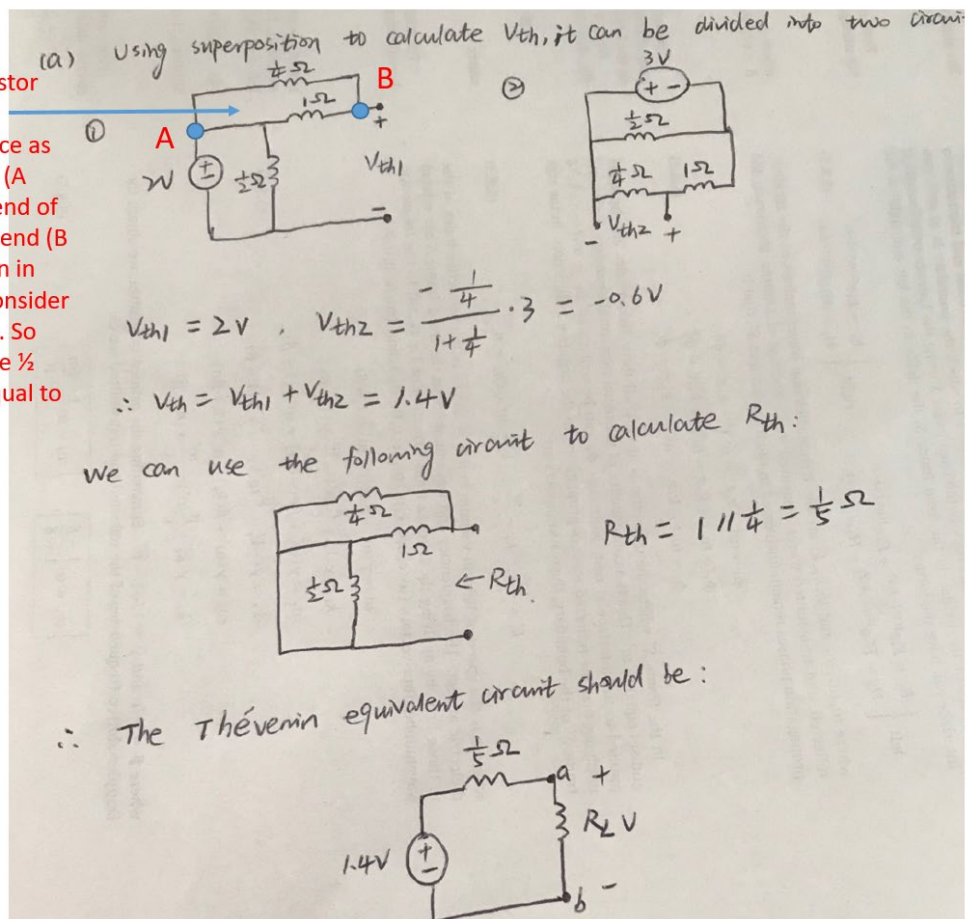 (a) Using superposition to calculate Vth, it can be divided into two
stor
ce as
(A
end of
end (B
n in
onsider
. So
e ½
ual to
①
A
B
1/4 Ω
1Ω
1/2 Ω
2V
+
-
+
Vth1
-
②
3V
+ -
1/2 Ω
1/4 Ω
1Ω
- Vth2 +
Vth1 = 2V , Vth2 = - 1/4 / (1 + 1/4) · 3 = -0.6V
∴ Vth = Vth1 + Vth2 = 1.4V
We can use the following circuit to calculate Rth:
1/4 Ω
1Ω
1/2 Ω
← Rth.
Rth = 1 // 1/4 = 1/5 Ω
∴ The Thévenin equivalent circuit should be:
1/5 Ω
a +
RL V
1.4V
+
-
b -